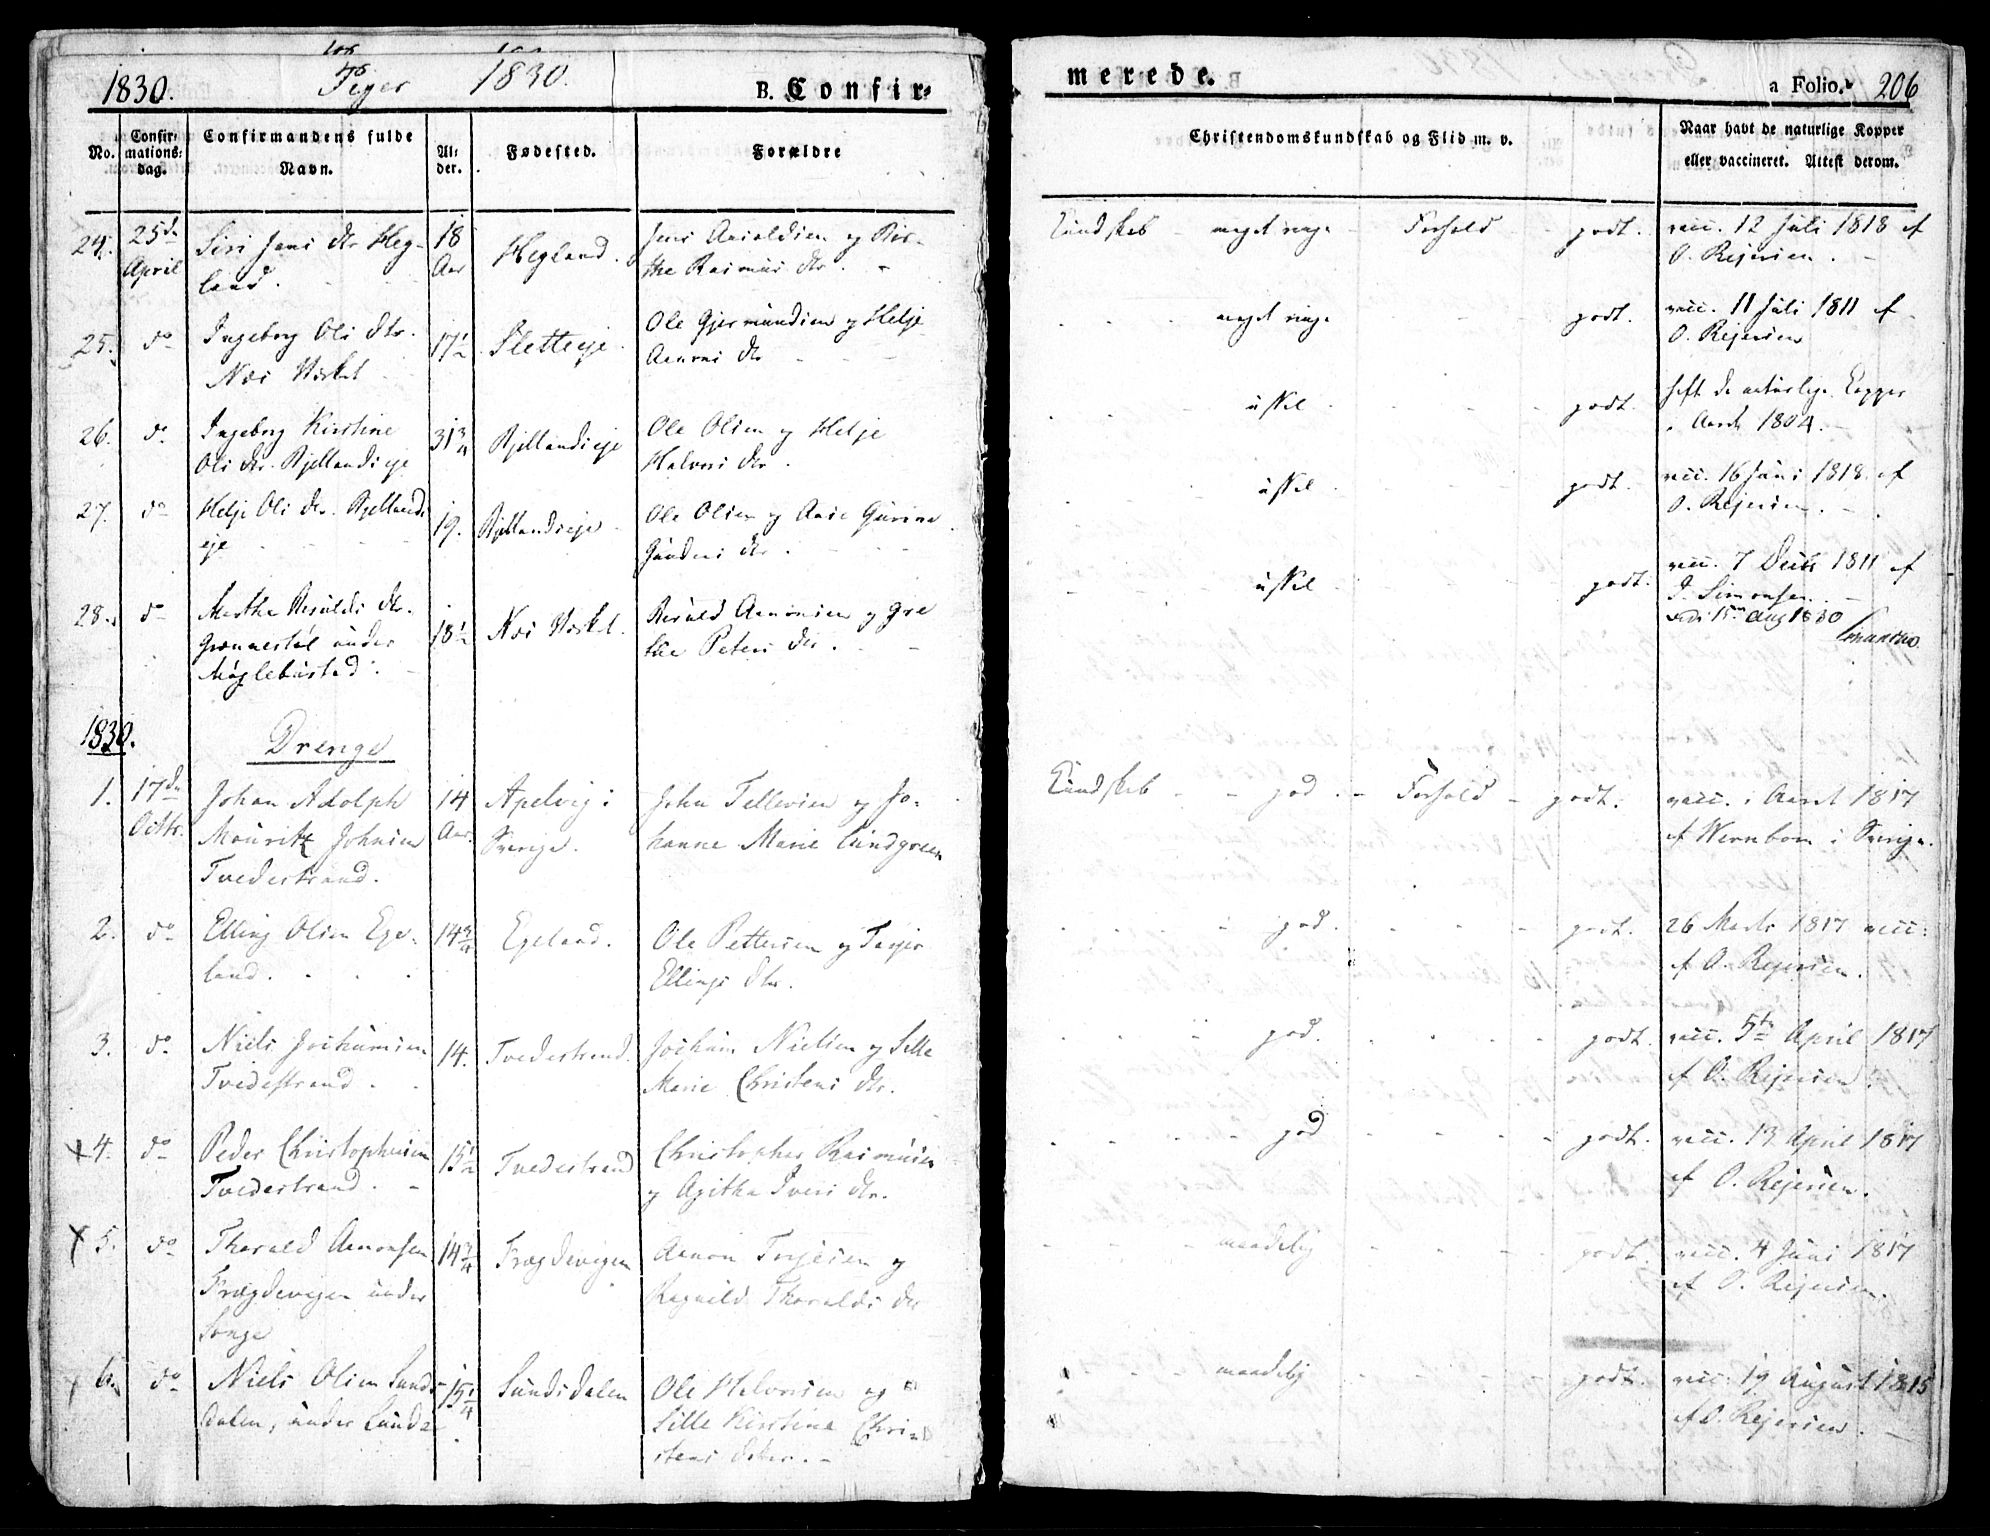 1830.
Piger 1830.
B. Confir-
merede.
a Folio. 206
No.
Confir-
mations-
dag.
Confirmandens fulde
Navn.
Al-
der.
Fødested.
Forældre
Christendomskundskab og Flid m. v.
Naar havt de naturlige Kopper
eller vaccineret. Attest derom.
24. 25de April
Siri Jens dtr Heg-
land.
18 Aar
Hegland.
Jens
the Rasmus dtr.
Kundskab - meget ringe - Forhold - godt.
vacc. 12 Juli 1818 af
O. Rejersen.
25. do
Ingeborg Ols dtr.
Næs Værket
17½
Sletteeje.
Ole Gjermundsen og Helje
Aanons dtr
meget ringe - godt.
vacc. 11 Juli 1811 af
O. Rejersen
26. do
Ingeborg Kirstine
Ols dtr. Kjellandseje
31¾
Kjellandseje
Ole Olsen og Helje
Halvors dtr.
uskel - godt.
haft de naturlige Kopper
i Aaret 1804.
27. do
Helje Ols dtr. Kjellands
eje
19.
Kjellandseje
Ole Olsen og Anne Gurine
Gunders dtr.
uskel - godt.
vacc. 16 Juni 1818 af
O. Rejersen.
28. do
Marthe Reruldi dtr.
under
Møglebustad.
18½
Næs Værket.
Rerald Aanonsen og Gre
the Peters dtr.
uskel - godt.
vacc. 7 Decbr 1811 af
J. Simonsen.
15 Aug 1830
1830.
Drenge
1. 17de Octbr.
Johan Adolph
Mauritz Johnsen
Tvedestrand.
14 Aar.
Apelvig i
Sverige.
John Tellevsen og Jo-
hanne Marie Lundgreen
Kundskab - god - Forhold - godt.
vacc. i Aaret 1817
af Wernbom i Sverige.
2. do
Elling Olsen Ege-
land.
14¾
Egeland.
Ole Pettersen og Tarjer
Ellings dtr.
god. - godt.
26 Marts 1817 vacc.
af O. Rejersen.
3. do
Niels Jochumsen
Tvedestrand.
14.
Tvedestrand.
Jochum Nielsen og Sille
Marie Christens dtr.
god. - godt.
vacc. 5te April 1817
af O. Rejersen.
4. do
Peder Christophersen
Tvedestrand.
15½
Tvedestrand
Christopher Rasmusen
og Agithe Ivers dtr.
god - godt.
vacc. 13 April 1817
af O. Rejersen.
5. do
Tharald Aanonsen
Frægdevigen under
Songe
14¾
Frægdevigen
Aanon Terjesen og
Ragnild Tharalds dtr
maadelig - godt.
vacc. 4 Juni 1817
af O. Rejersen.
6. do
Niels Olsen Sunds
dalen, under Lunde
15¼
Sundsdalen
Ole Halvorsen og
Sille Kirstine Chri-
stens dater.
maadelig - godt.
vacc. 19 August 1815
af O. Rejersen.